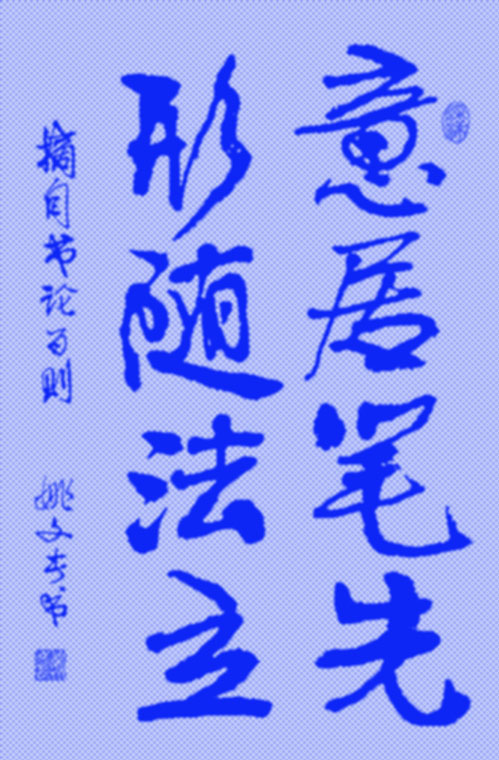 意居笔先
形随法立
摘自书论百则
姚文奎书